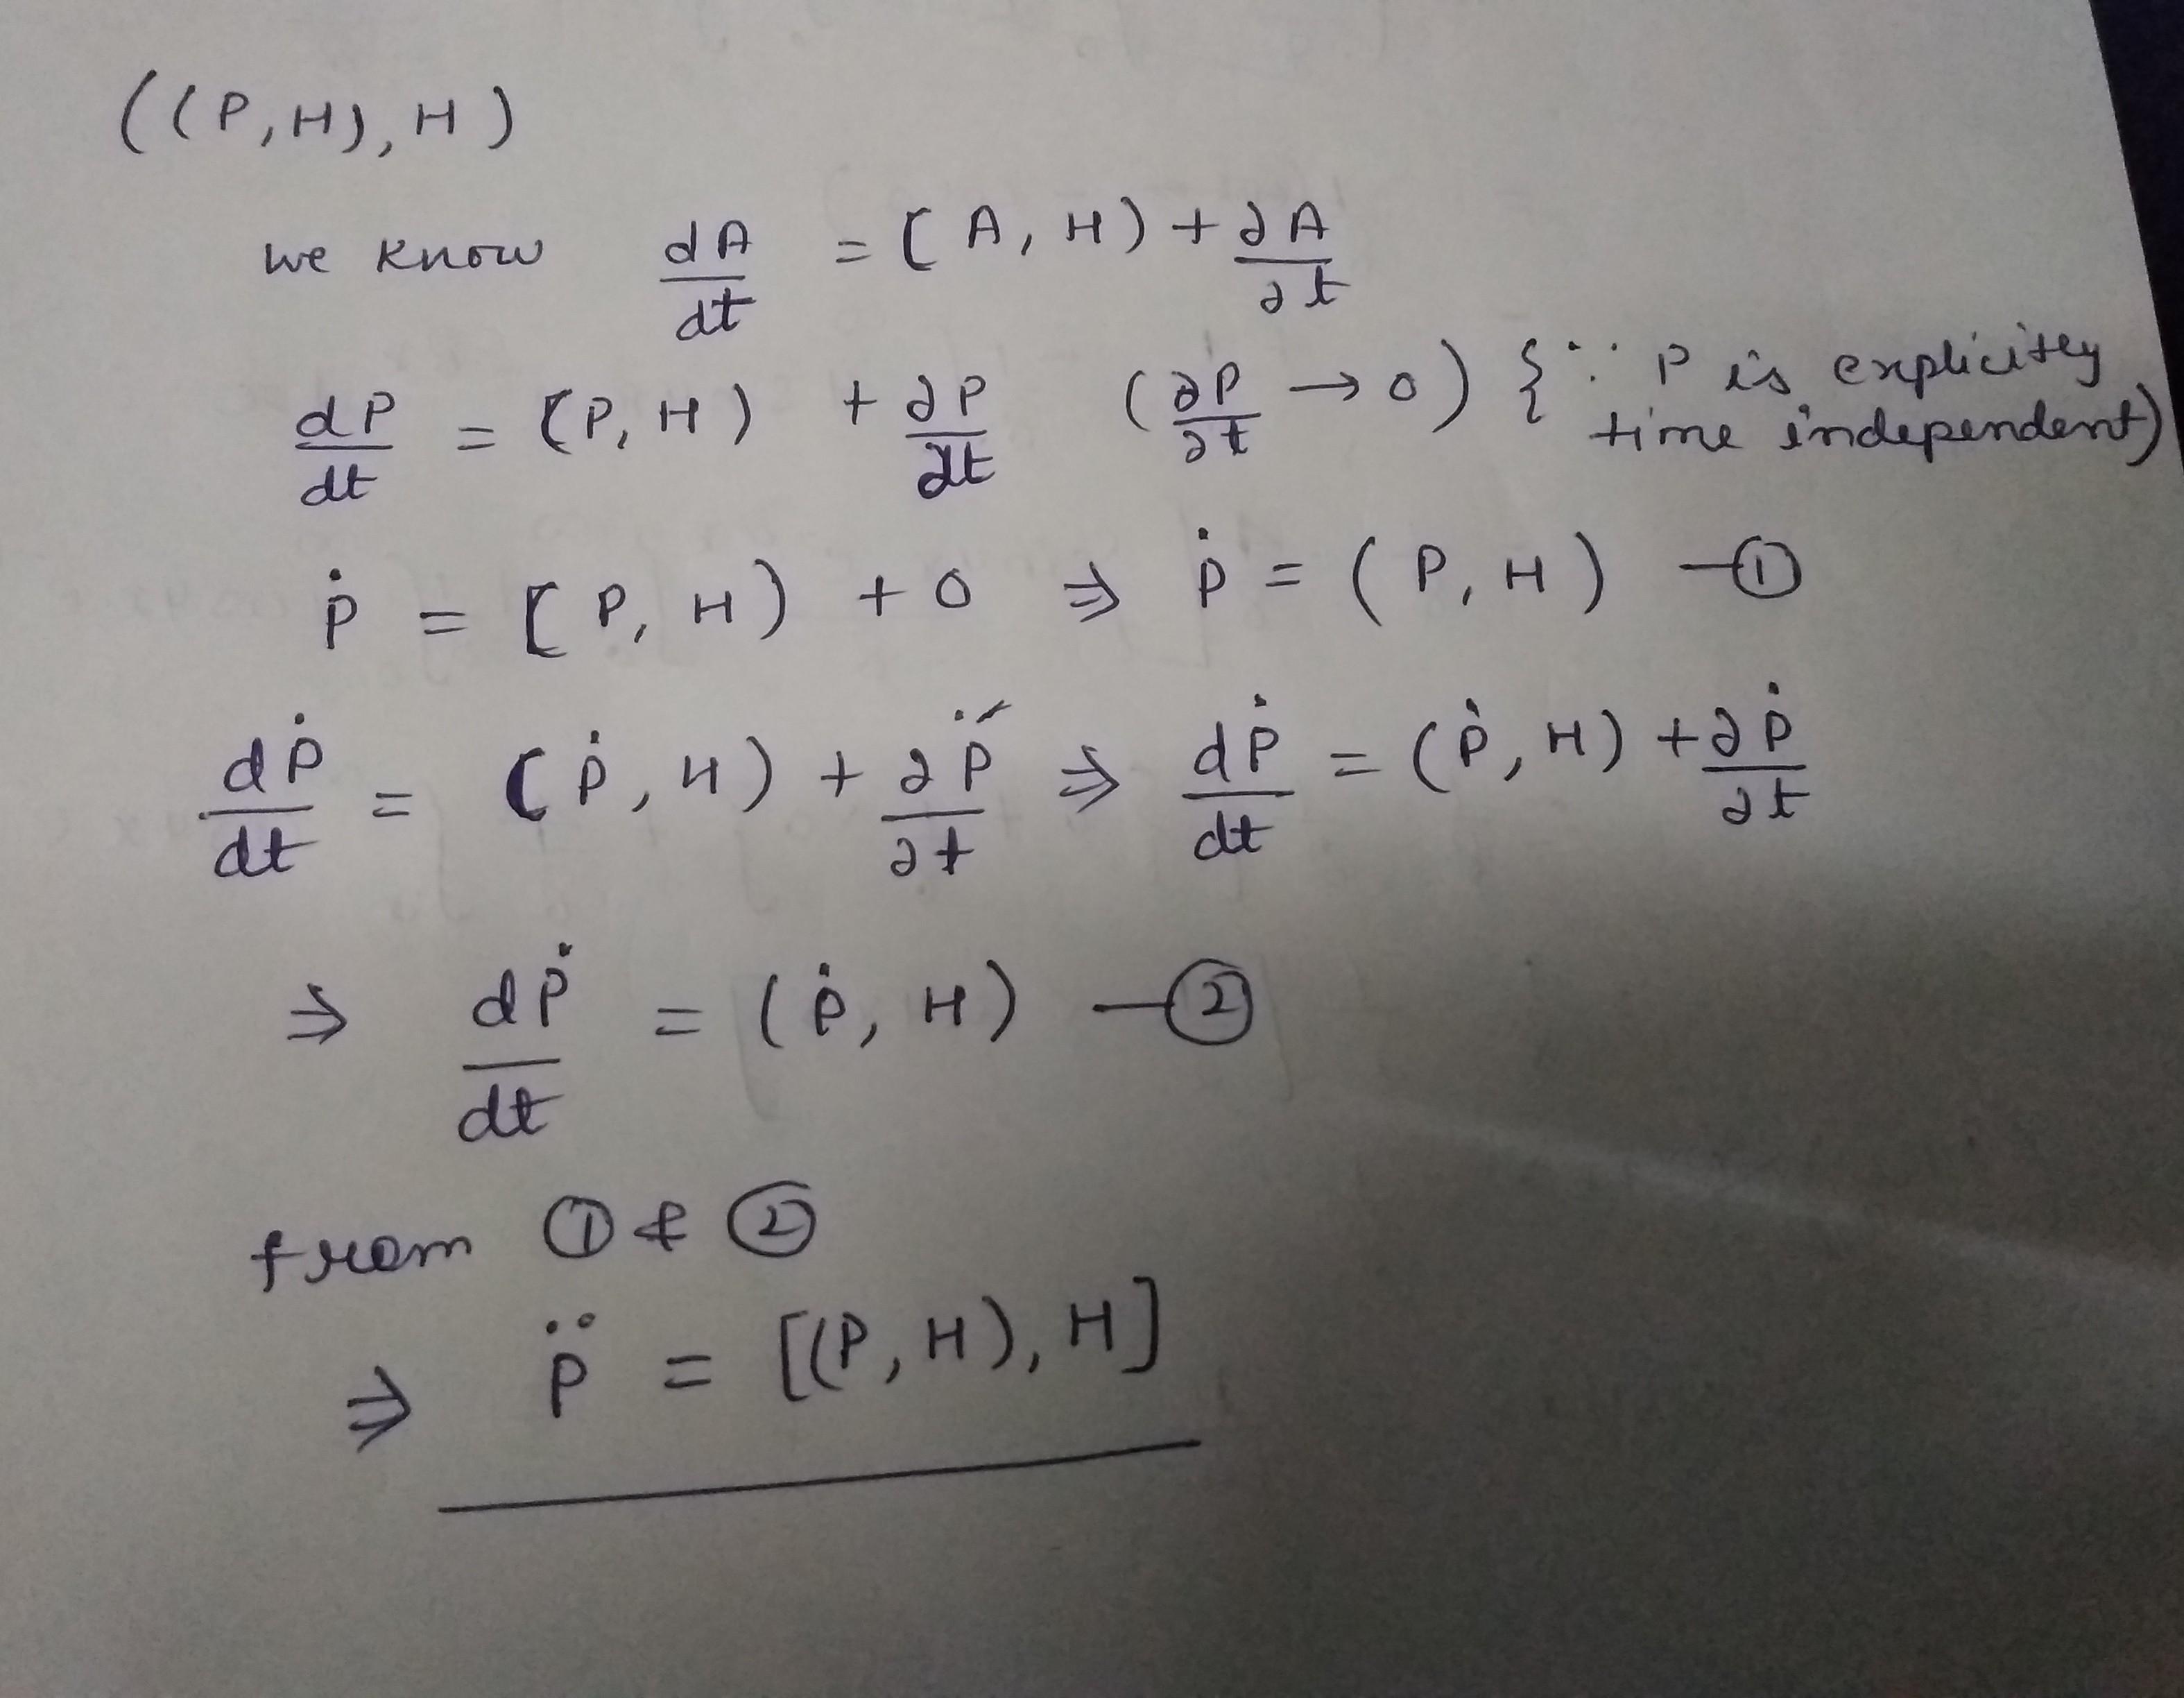 ((P,H),H)
we know dA/dt = [A,H) + ∂A/∂t
dP/dt = [P,H) + ∂P/∂t (∂P/∂t → 0) {∵ P is explicitly time independent)
Ṗ = [P,H) + 0 ⇒ Ṗ = (P,H) —①
dṖ/dt = (Ṗ,H) + ∂Ṗ/∂t ⇒ dṖ/dt = (Ṗ,H) + ∂Ṗ/∂t
⇒ dṖ/dt = (Ṗ,H) —②
from ① & ②
⇒ P̈ = [(P,H),H]